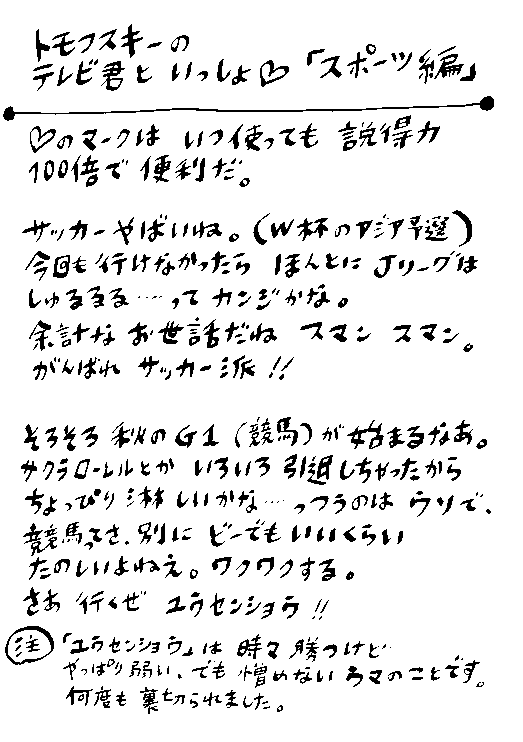 トモフスキーの
テレビ君といっしょ♡「スポーツ編」
♡のマークは いつ使っても 説得力
100倍で 便利だ。
サッカーやばいね。(W杯のアジア予選)
今回も行けなかったら ほんとに Jリーグは
しゅるるる……って カンジかな。
余計な お世話だね スマン スマン。
がんばれ サッカー派!!
そろそろ 秋の G1 (競馬) が 始まるなあ。
サクラローレルとか いろいろ 引退しちゃったから
ちょっぴり 淋しいかな……っつうのは ウソで、
競馬ってさ、別に どーでもいいくらい
たのしいよねえ。ワクワクする。
さあ 行くぜ ユウセンショウ!!
注 「ユウセンショウ」は 時々 勝つけど
やっぱり弱い、でも 憎めない ウマのことです。
何度も 裏切られました。